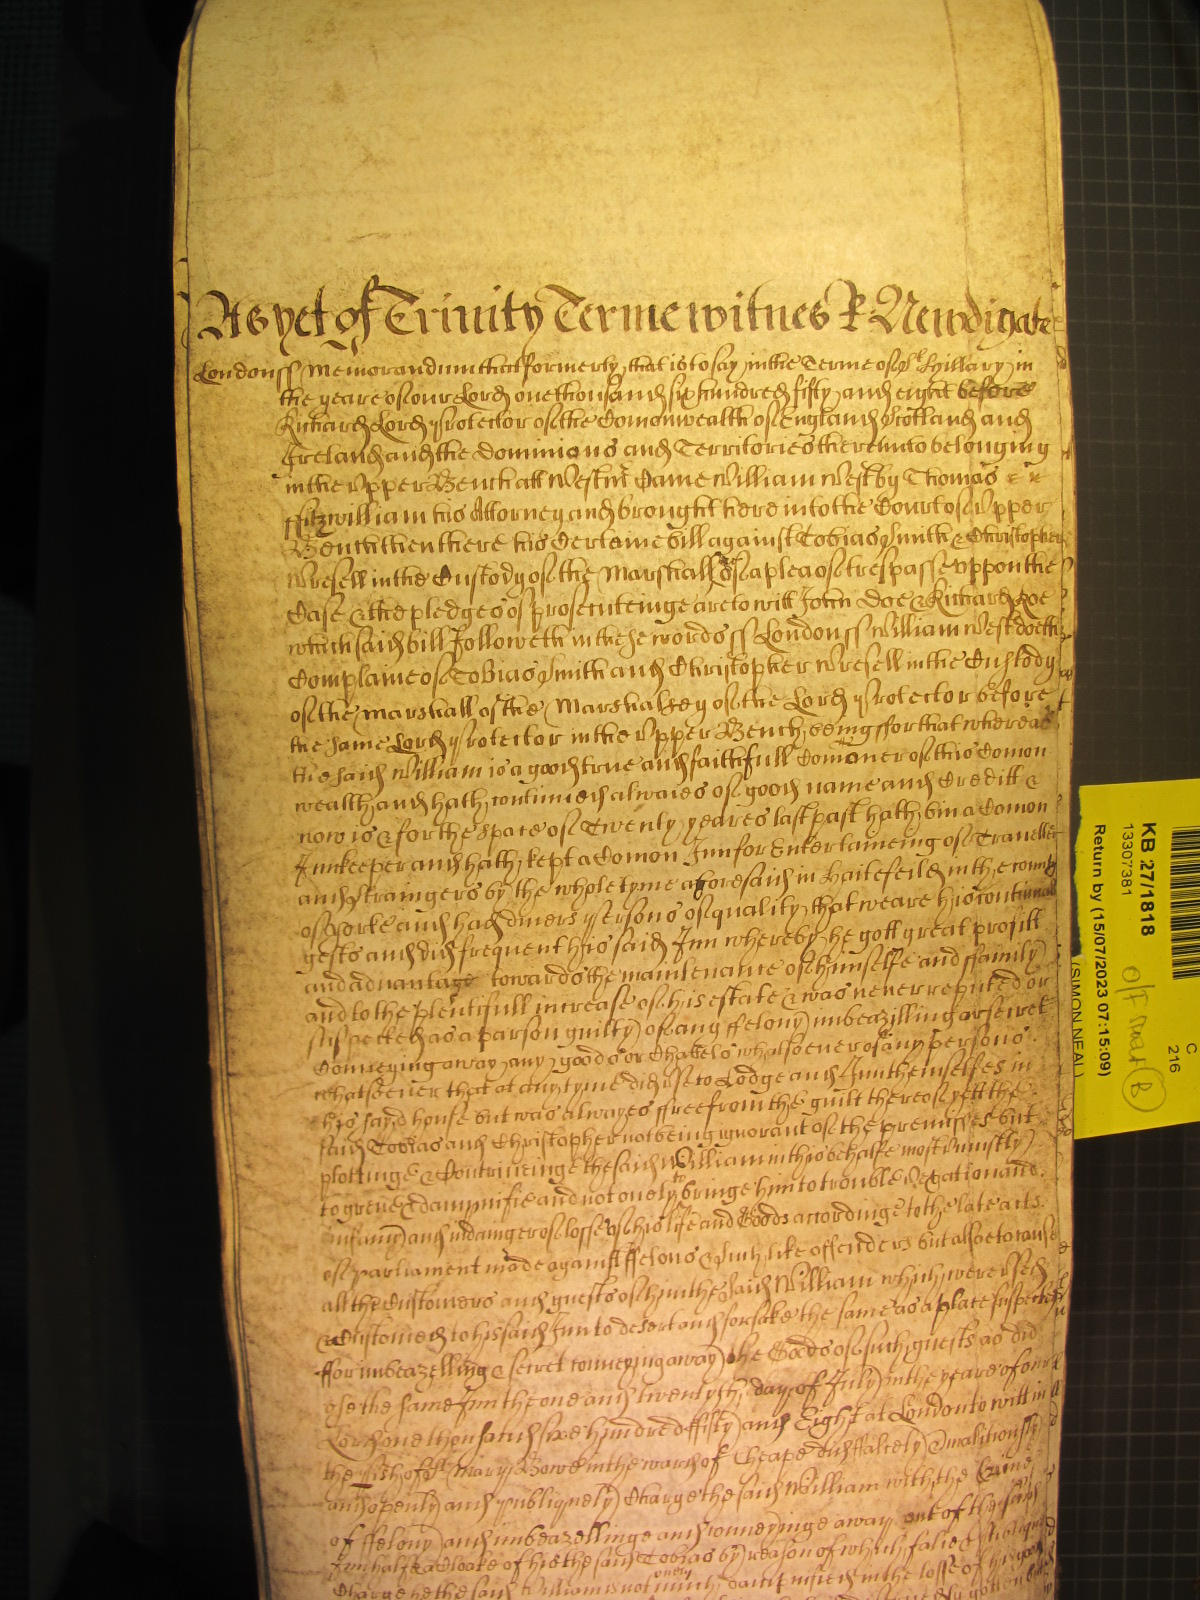 As yet of Trinity Terme witnes R Newdigate
London ss Memorandum that formerly that is to say in the Terme of St Hillary in
the yeare of our Lord one thousand six hundred fifty and eight before
Richard Lord Protector of the Comonwealth of England Scotland and
Ireland and the Dominions and Territories thereunto belonging
in the Upper Bench att Westmr Came William West by Thomas
ffitzwilliam his Attorney and brought here into the Court of Upper
Bench then there his Certaine bill against Tobias Smith & Christopher
Wresell in the Custody of the Marshall of a plea of trespasse uppon the
Case & the pledges of prosecuteinge are to witt John Doe & Richard Roe
which said bill Followeth in these words ss London ss William West doeth
Complaine of Tobias Smith and Christopher Wresell in the Custody
of the Marshall of the Marshalsey of the Lord Protector before
the same Lord Protector in the Upper Bench being ffor that whereas
the said William is a good true and faithfull Comoner of this Comon
wealth and hath continued alwaies of good name and Creditt &
now is & for the space of Twenty yeares last past hath bin a Comon
Innkeeper and hath kept a Comon Inn for Entertaineing of Traveller
and Straingers by the whole tyme aforesaid in Hattefeild in the County
of Yorke and had divers persons of quality that weare his continuall
gests and did frequent his said Inn whereby he gott great profitt
and advantage towards the maintenance of himselfe and ffamily
and to the plentifull increase of his estate & was never reputed or
suspected as a parson guilty of any ffelony imbeazilling or secret
Conveying away any goods or Chatels whatsoever of any persons
whatsoever that at any tyme did use to Lodge and Inn themselves in
his sayd house but was alwayes ffree from the guilt thereof yett the
said Tobias and Christopher not being ignorant of the premisses but
plottinge & Contriveinge the said William in this behalfe most uniustly
to greive & dampnifie and not onely to bringe him to trouble vexation and
infamy and in dainger of losse of his life and Goods accordinge to the late acts
of parliament made against ffelons & such like offenders but alsoe to cause
all the Customers and guests of him the said William which were used
& Customed to his said Inn to desert and forsake the same as a place suspected
ffor imbeazelling & secret conveying away the Goods of such guests as did
use the same Inn the one and twentyth day of July in the yeare of our
Lord one thousand sixe hundred ffifty and Eight at London to witt in
the pish of St Mary Bowe in the ward of Cheape did ffalcely & malitiously
and openly and publiquely Charge the said William with the Crime
of ffelony and imbeazellinge and conveyinge away out of the said
Inn halfe a Cloake of his the said Tobias by reason of which false &
Charge he the said William is not onely much dampnified in the losse of his good